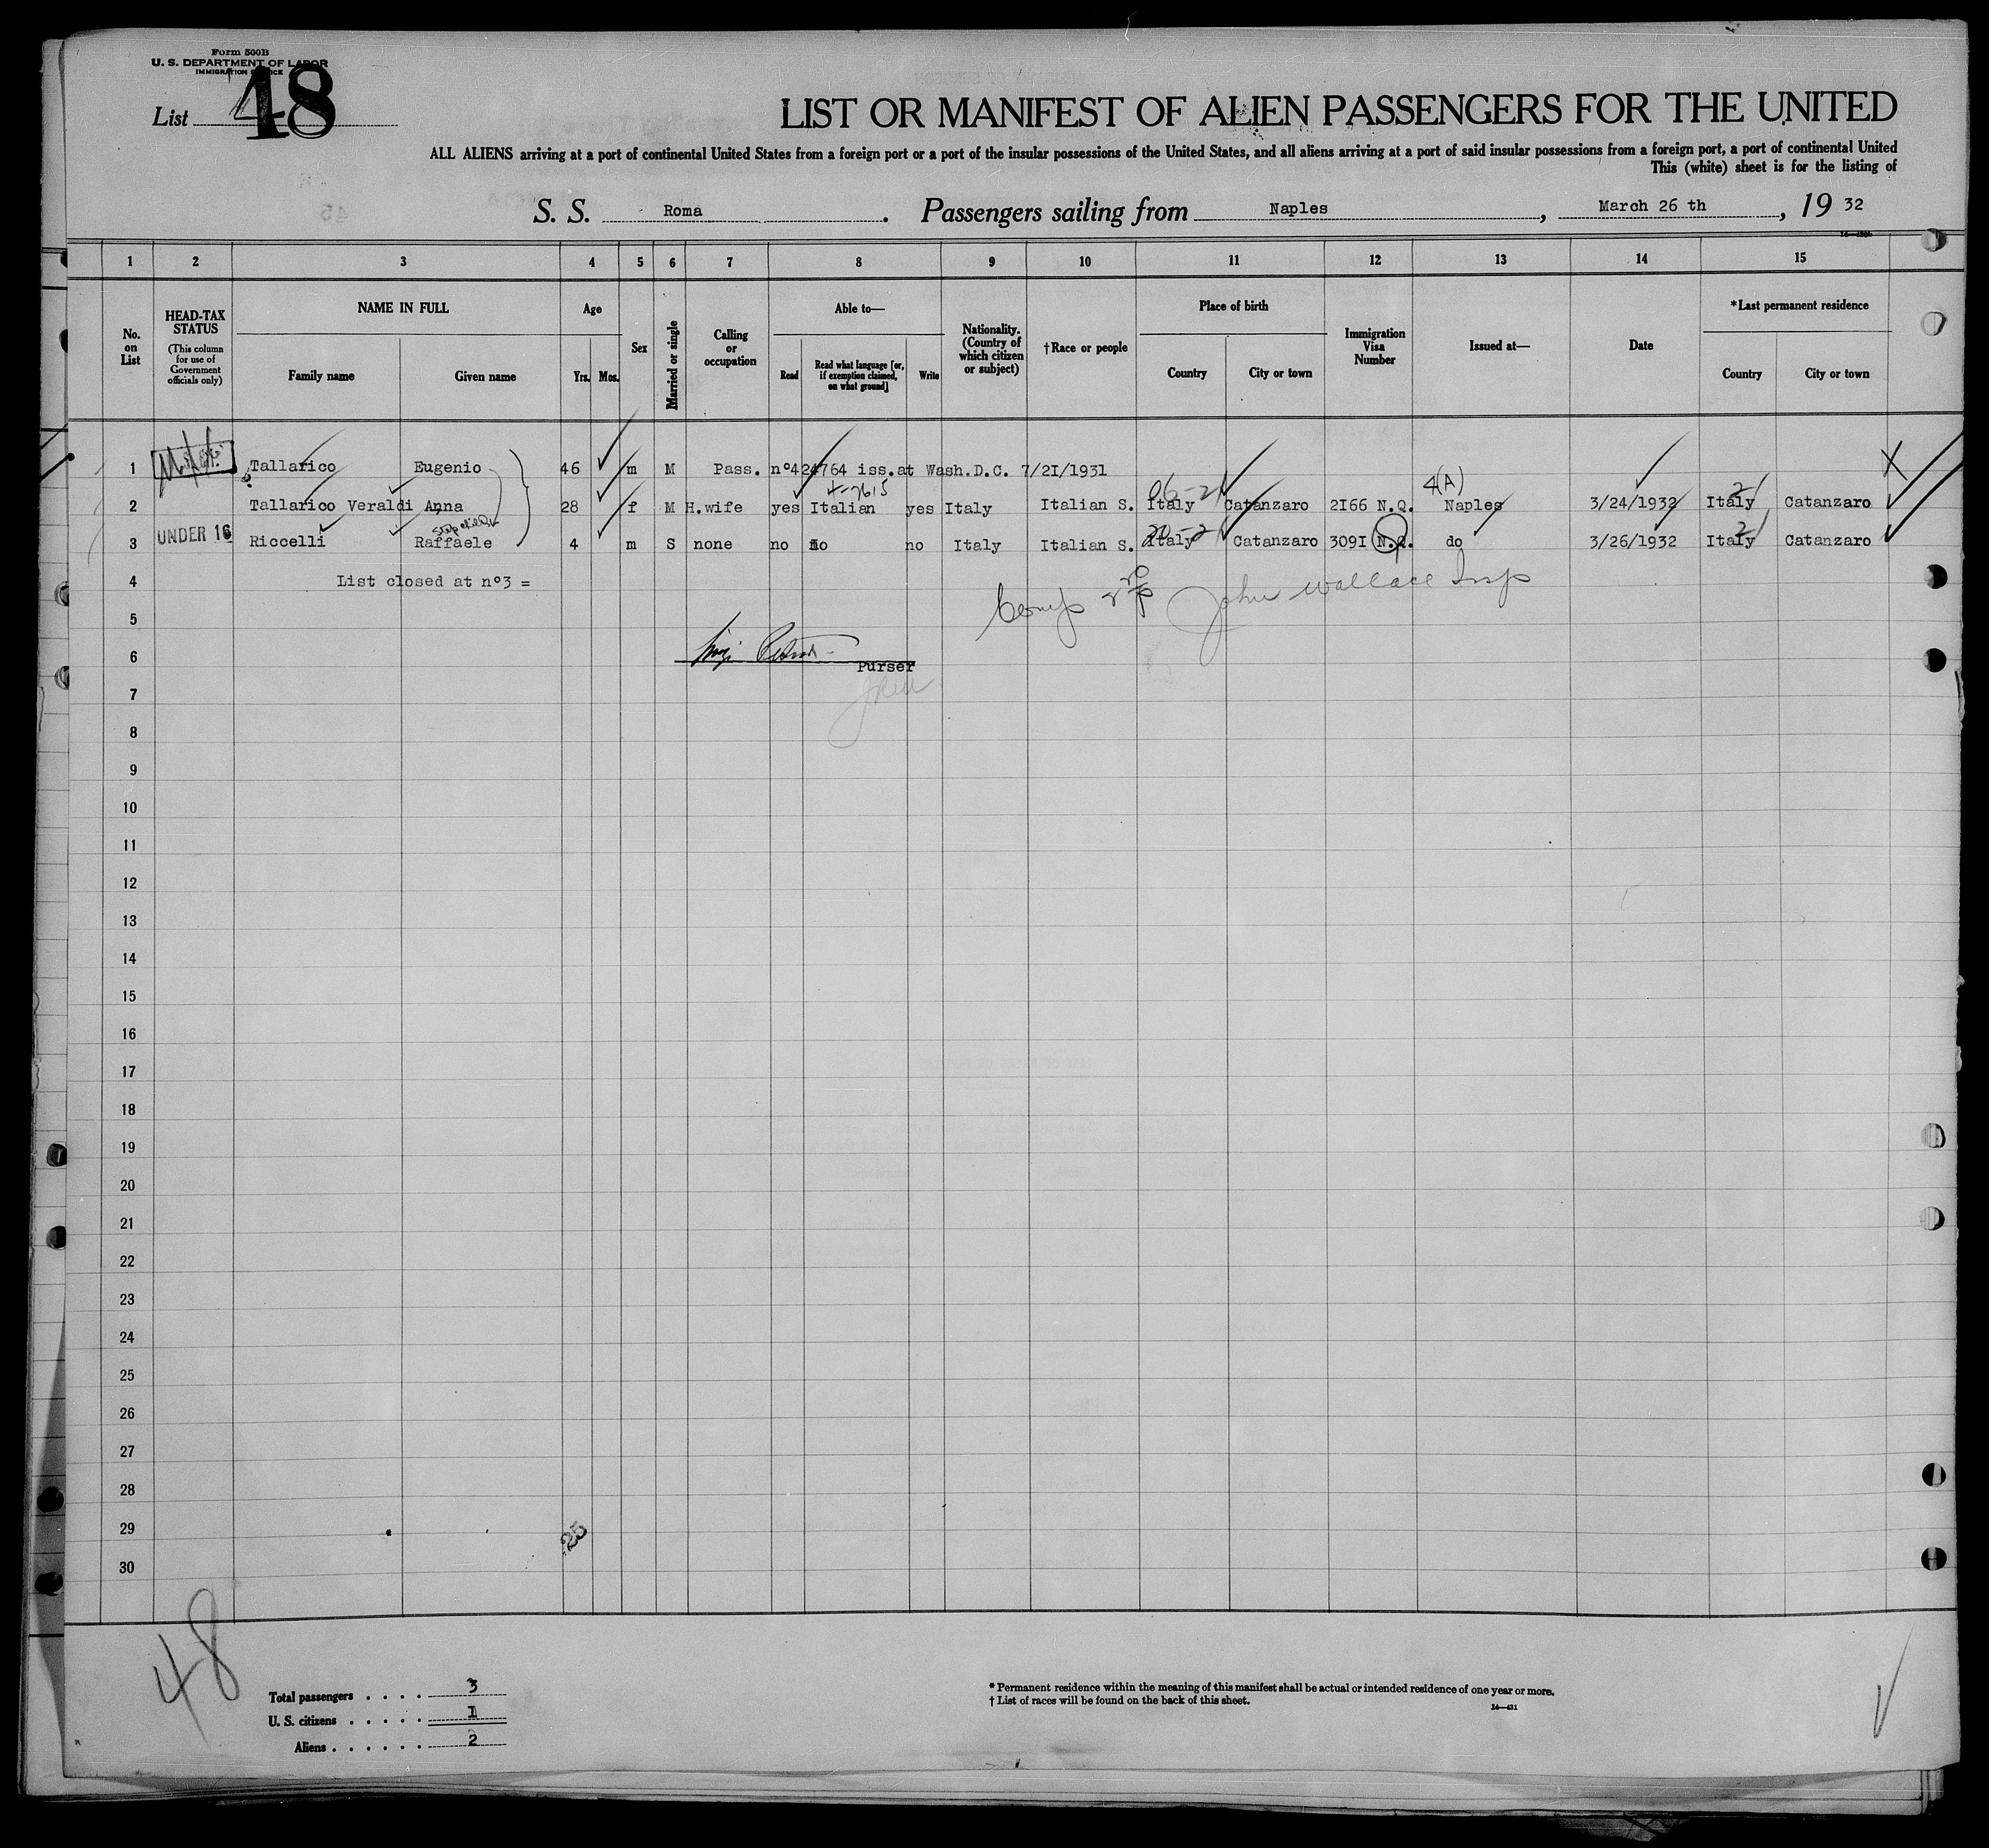 Form 500B
U. S. DEPARTMENT OF LABOR
IMMIGRATION SERVICE
List 48
LIST OR MANIFEST OF ALIEN PASSENGERS FOR THE UNITED
ALL ALIENS arriving at a port of continental United States from a foreign port or a port of the insular possessions of the United States, and all aliens arriving at a port of said insular possessions from a foreign port, a port of continental United
This (white) sheet is for the listing of
S. S. Roma. Passengers sailing from Naples, March 26 th, 19 32
1 2 3 4 5 6 7 8 9 10 11 12 13 14 15
No. on List
HEAD-TAX STATUS (This column for use of Government officials only)
NAME IN FULL Family name Given name
Age Yrs. Mos.
Sex
Married or single
Calling or occupation
Able to— Read Read what language [or, if exemption claimed, on what ground] Write
Nationality. (Country of which citizen or subject)
†Race or people
Place of birth Country City or town
Immigration Visa Number
Issued at—
Date
*Last permanent residence Country City or town
1 Tallarico Eugenio 46 m M Pass. nº424764 iss.at Wash.D.C. 7/2I/1931
4-7615 06-21 4(A)
2 Tallarico Veraldi Anna 28 f M H.wife yes Italian yes Italy Italian S. Italy Catanzaro 2I66 N.Q. Naples 3/24/1932 Italy Catanzaro
3 UNDER 16 Riccelli Raffaele 4 m S none no no no Italy Italian S. Italy Catanzaro 309I N.Q. do 3/26/1932 Italy Catanzaro
4 List closed at nº3 =
John Wallace Insp
5
6
Purser
7
8
9
10
11
12
13
14
15
16
17
18
19
20
21
22
23
24
25
26
27
28
29
25
30
48
Total passengers . . . . 3
U. S. citizens . . . . . 1
Aliens . . . . . . 2
* Permanent residence within the meaning of this manifest shall be actual or intended residence of one year or more.
† List of races will be found on the back of this sheet.
14—431